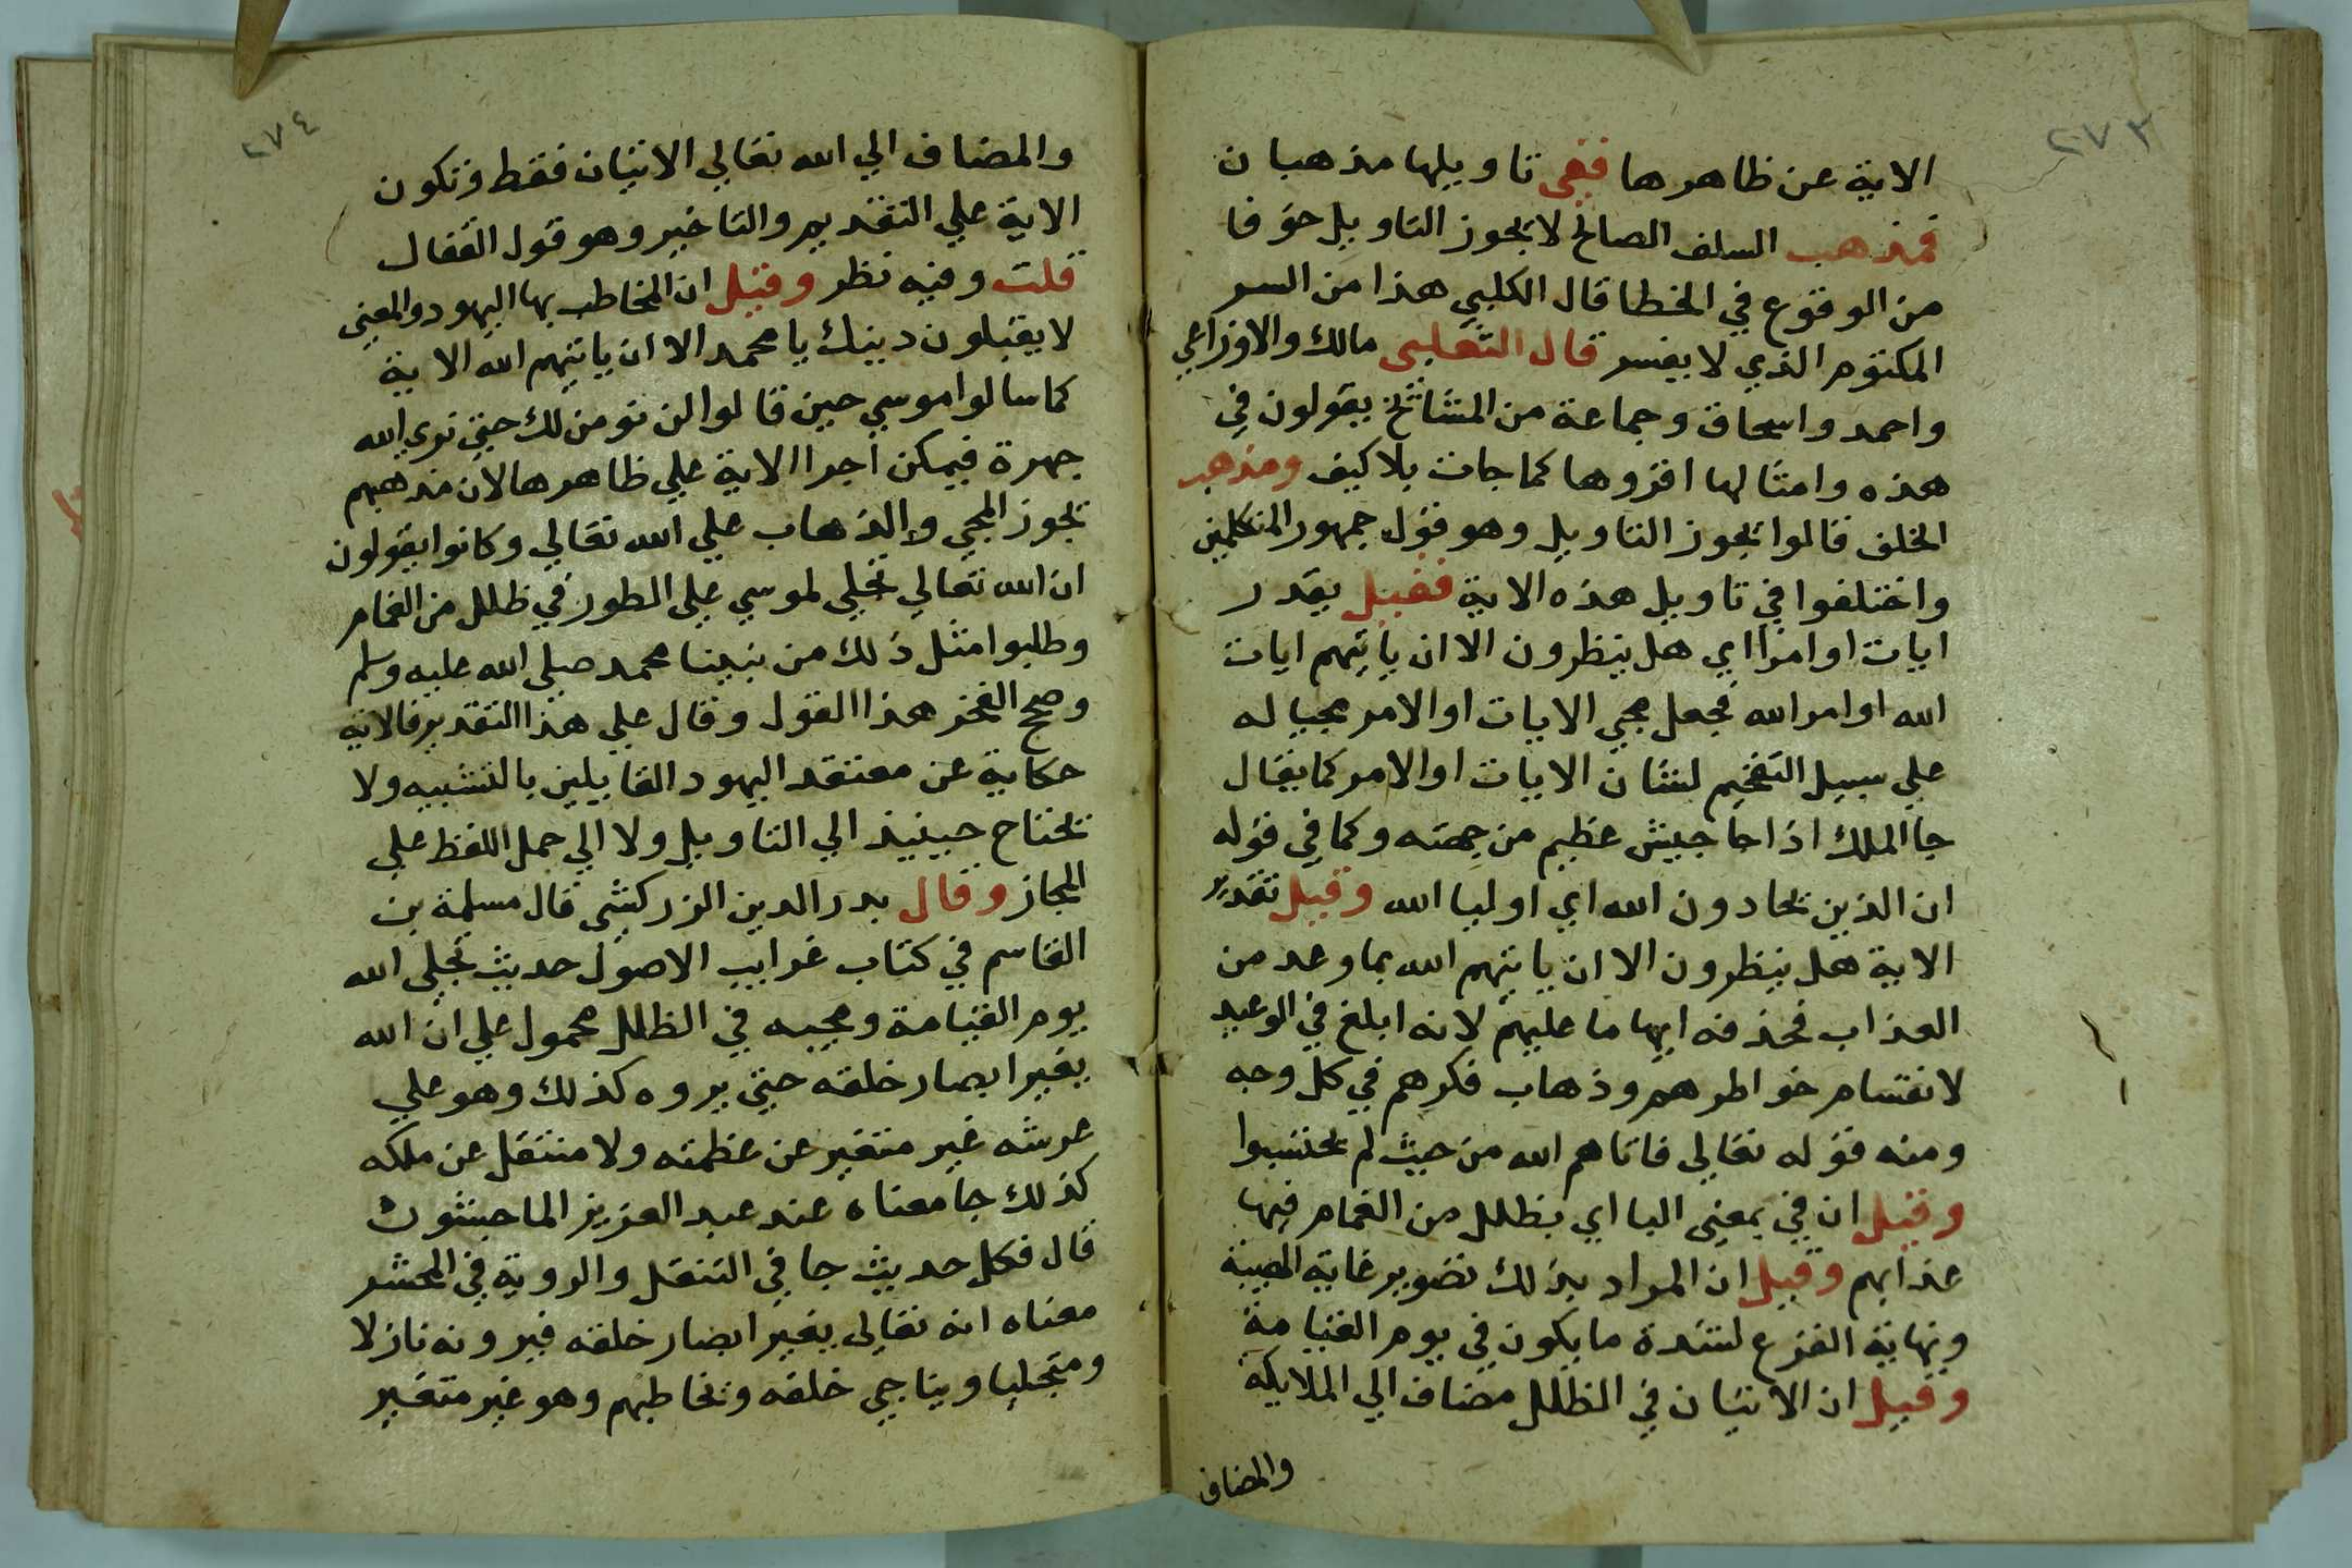 ٢٧٣
الاية عن ظاهرها ففي تاويلها مذهبان
فمذهب السلف الصالح لا يجوز التاويل خوفا
من الوقوع في الخطا قال الكلبي هذا من السر
المكتوم الذي لا يفسر قال الثعلبي مالك والاوزاعي
واحمد واسحاق وجماعة من المشائخ يقولون في
هذه وامثالها اقروها كما جات بلا كيف ومذهب
الخلف قالوا يجوز التاويل وهو قول جمهور المتكلمين
واختلفوا في تاويل هذه الاية فقيل يقدر
ايات او امرا اي هل ينظرون الا ان ياتيهم ايات
الله او امر الله فجعل مجي الايات او الامر مجيا له
علي سبيل التفخيم لشان الايات او الامر كما يقال
جا الملك اذا جا جيش عظيم من جهته وكما في قوله
ان الذين يحادون الله اي اوليا الله وقيل تقدير
الاية هل ينظرون الا ان ياتيهم الله بما وعد من
العذاب فحذفه ايهاما عليهم لانه ابلغ في الوعيد
لانقسام خواطرهم وذهاب فكرهم في كل وجه
ومنه قوله تعالي فاتاهم الله من حيث لم يحتسبوا
وقيل ان في بمعني البا اي بظلل من الغمام فيها
عذابهم وقيل ان المراد بذلك تصوير غاية الهيبة
ونهاية الفزع لشدة ما يكون في يوم القيامة
وقيل ان الاتيان في الظلل مضاف الي الملايكة
والمضاف
٢٧٤
والمضاف الي الله تعالي الاتيان فقط وتكون
الاية علي التقديم والتاخير وهو قول القفال
قلت وفيه نظر وقيل ان المخاطب بها اليهود والمعني
لا يقبلون دينك يا محمد الا ان ياتيهم الله الاية
كما سالوا موسي حين قالوا لن نومن لك حتي نري الله
جهرة فيمكن اجرا الاية علي ظاهرها لان مذهبهم
يجوز المجي والذهاب علي الله تعالي وكانوا يقولون
ان الله تعالي تجلي لموسي علي الطور في ظلل من الغمام
وطلبوا مثل ذلك من نبينا محمد صلي الله عليه وسلم
وصحح الفخر هذا القول وقال علي هذا التقدير فالاية
حكاية عن معتقد اليهود القايلين بالتشبيه ولا
يحتاج حينيذ الي التاويل ولا الي حمل اللفظ علي
المجاز وقال بدر الدين الزركشي قال مسلمة بن
القاسم في كتاب غرايب الاصول حديث تجلي الله
يوم القيامة ومجيه في الظلل محمول علي ان الله
يغير ابصار خلقه حتي يروه كذلك وهو علي
عرشه غير متغير عن عظمته ولا منتقل عن ملكه
كذلك جا معناه عند عبد العزيز الماجشون
قال فكل حديث جا في التنقل والروية في المحشر
معناه انه تعالي يغير ابصار خلقه فيرونه نازلا
ومتجليا ويناجي خلقه ويخاطبهم وهو غير متغير